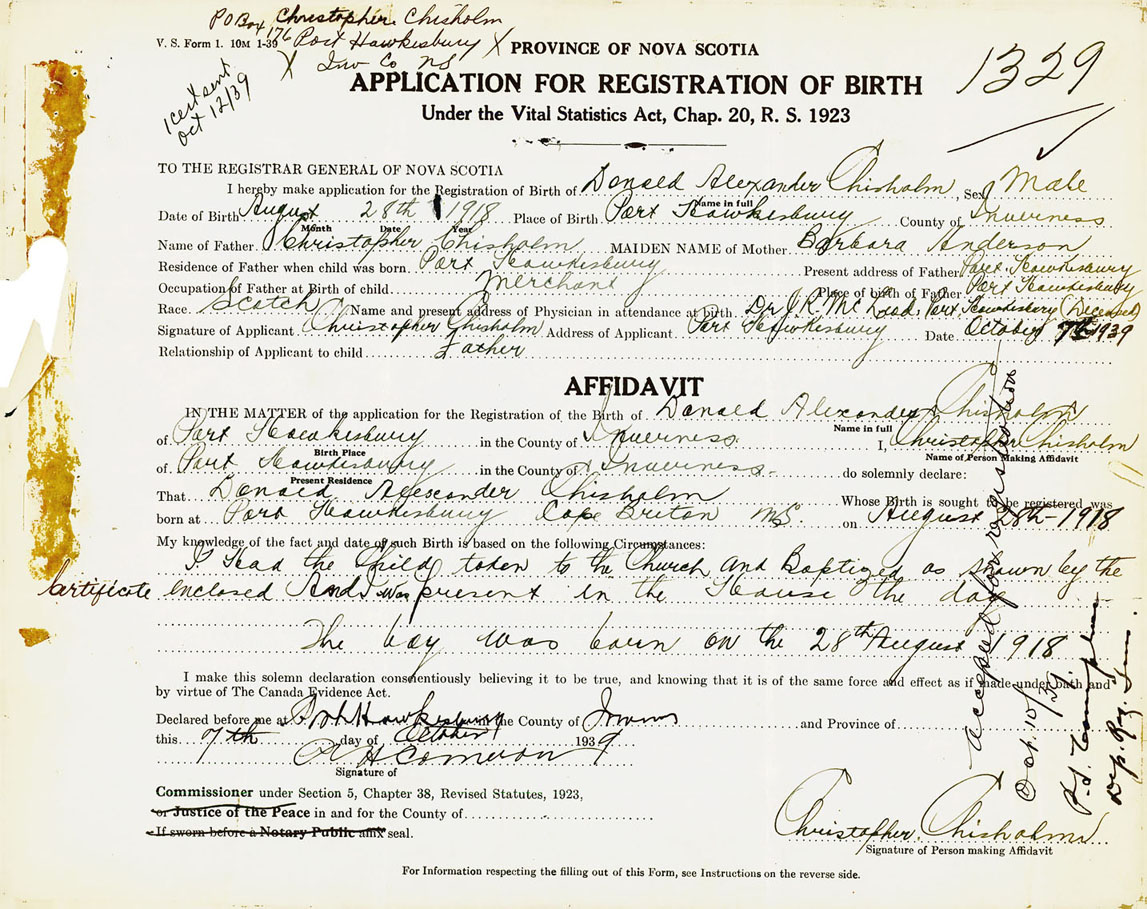 PO Box Christopher Chisholm
176 Port Hawkesbury
Inv Co NS
V. S. Form 1. 10M 1-39
1329
1 cert sent
Oct 12/39
PROVINCE OF NOVA SCOTIA
APPLICATION FOR REGISTRATION OF BIRTH
Under the Vital Statistics Act, Chap. 20, R. S. 1923
TO THE REGISTRAR GENERAL OF NOVA SCOTIA
I hereby make application for the Registration of Birth of Donald Alexander Chisholm, Sex Male
Name in full
Date of Birth August 28th 1918 Place of Birth Port Hawkesbury County of Inverness
Month Date Year
Name of Father Christopher Chisholm MAIDEN NAME of Mother Barbara Anderson
Residence of Father when child was born Port Hawkesbury Present address of Father Port Hawkesbury
Occupation of Father at Birth of child Merchant Place of birth of Father Port Hawkesbury
Race. Scotch Name and present address of Physician in attendance at birth Dr J. R. McLeod, Port Hawkesbury (Deceased)
Signature of Applicant Christopher Chisholm Address of Applicant Port Hawkesbury Date October 7th 1939
Relationship of Applicant to child Father
AFFIDAVIT
IN THE MATTER of the application for the Registration of the Birth of Donald Alexander Chisholm
Name in full
of Port Hawkesbury in the County of Inverness I, Christopher Chisholm
Birth Place Name of Person Making Affidavit
of Port Hawkesbury in the County of Inverness do solemnly declare:
Present Residence
That Donald Alexander Chisholm Whose Birth is sought to be registered was
born at Port Hawkesbury Cape Briton NS. on August 28th-1918
My knowledge of the fact and date of such Birth is based on the following Circumstances:
I Had the Child taken to the Church and Baptized as shown by the
Certificate enclosed And I was present in the House the day
The boy was born on the 28th August 1918
I make this solemn declaration conscientiously believing it to be true, and knowing that it is of the same force and effect as if made under oath and
by virtue of The Canada Evidence Act.
Declared before me at Port Hawkesbury the County of and Province of
this 7th day of October 1939
Signature of
Commissioner under Section 5, Chapter 38, Revised Statutes, 1923,
or Justice of the Peace in and for the County of
If sworn before a Notary Public affix seal.
Christopher Chisholm
Signature of Person making Affidavit
For Information respecting the filling out of this Form, see Instructions on the reverse side.
Accepted for registration
Oct. 10/39.
Dep. Reg. Gen.